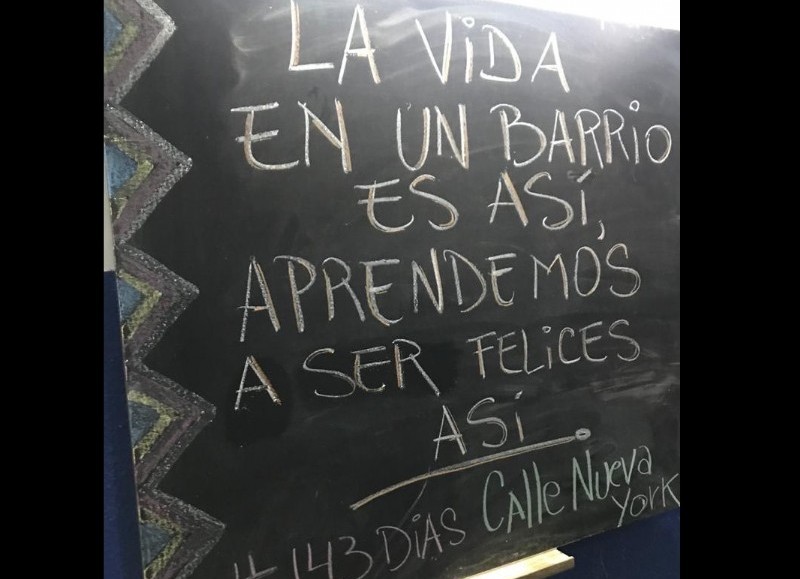 LA ViDA
EN UN BARRiO
ES ASÍ,
APRENDEMOS
A SER FELiCES
ASÍ
143 DÍAS CAlle NuevA
York